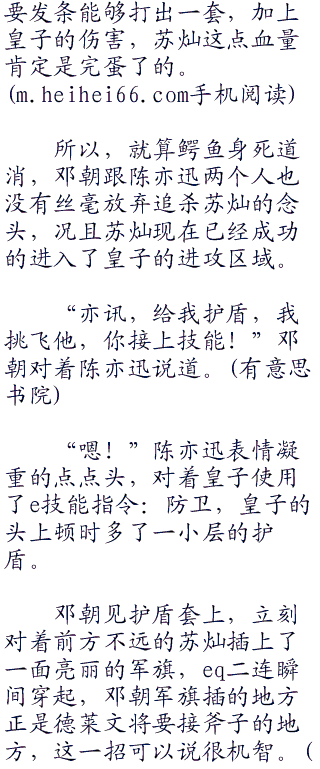 要发条能够打出一套，加上
皇子的伤害，苏灿这点血量
肯定是完蛋了的。
(m.heihei66.com手机阅读)
所以，就算鳄鱼身死道
消，邓朝跟陈亦迅两个人也
没有丝毫放弃追杀苏灿的念
头，况且苏灿现在已经成功
的进入了皇子的进攻区域。
“亦讯，给我护盾，我
挑飞他，你接上技能！”邓
朝对着陈亦迅说道。(有意思
书院)
“嗯！”陈亦迅表情凝
重的点点头，对着皇子使用
了e技能指令：防卫，皇子的
头上顿时多了一小层的护
盾。
邓朝见护盾套上，立刻
对着前方不远的苏灿插上了
一面亮丽的军旗，eq二连瞬
间穿起，邓朝军旗插的地方
正是德莱文将要接斧子的地
方，这一招可以说很机智。(